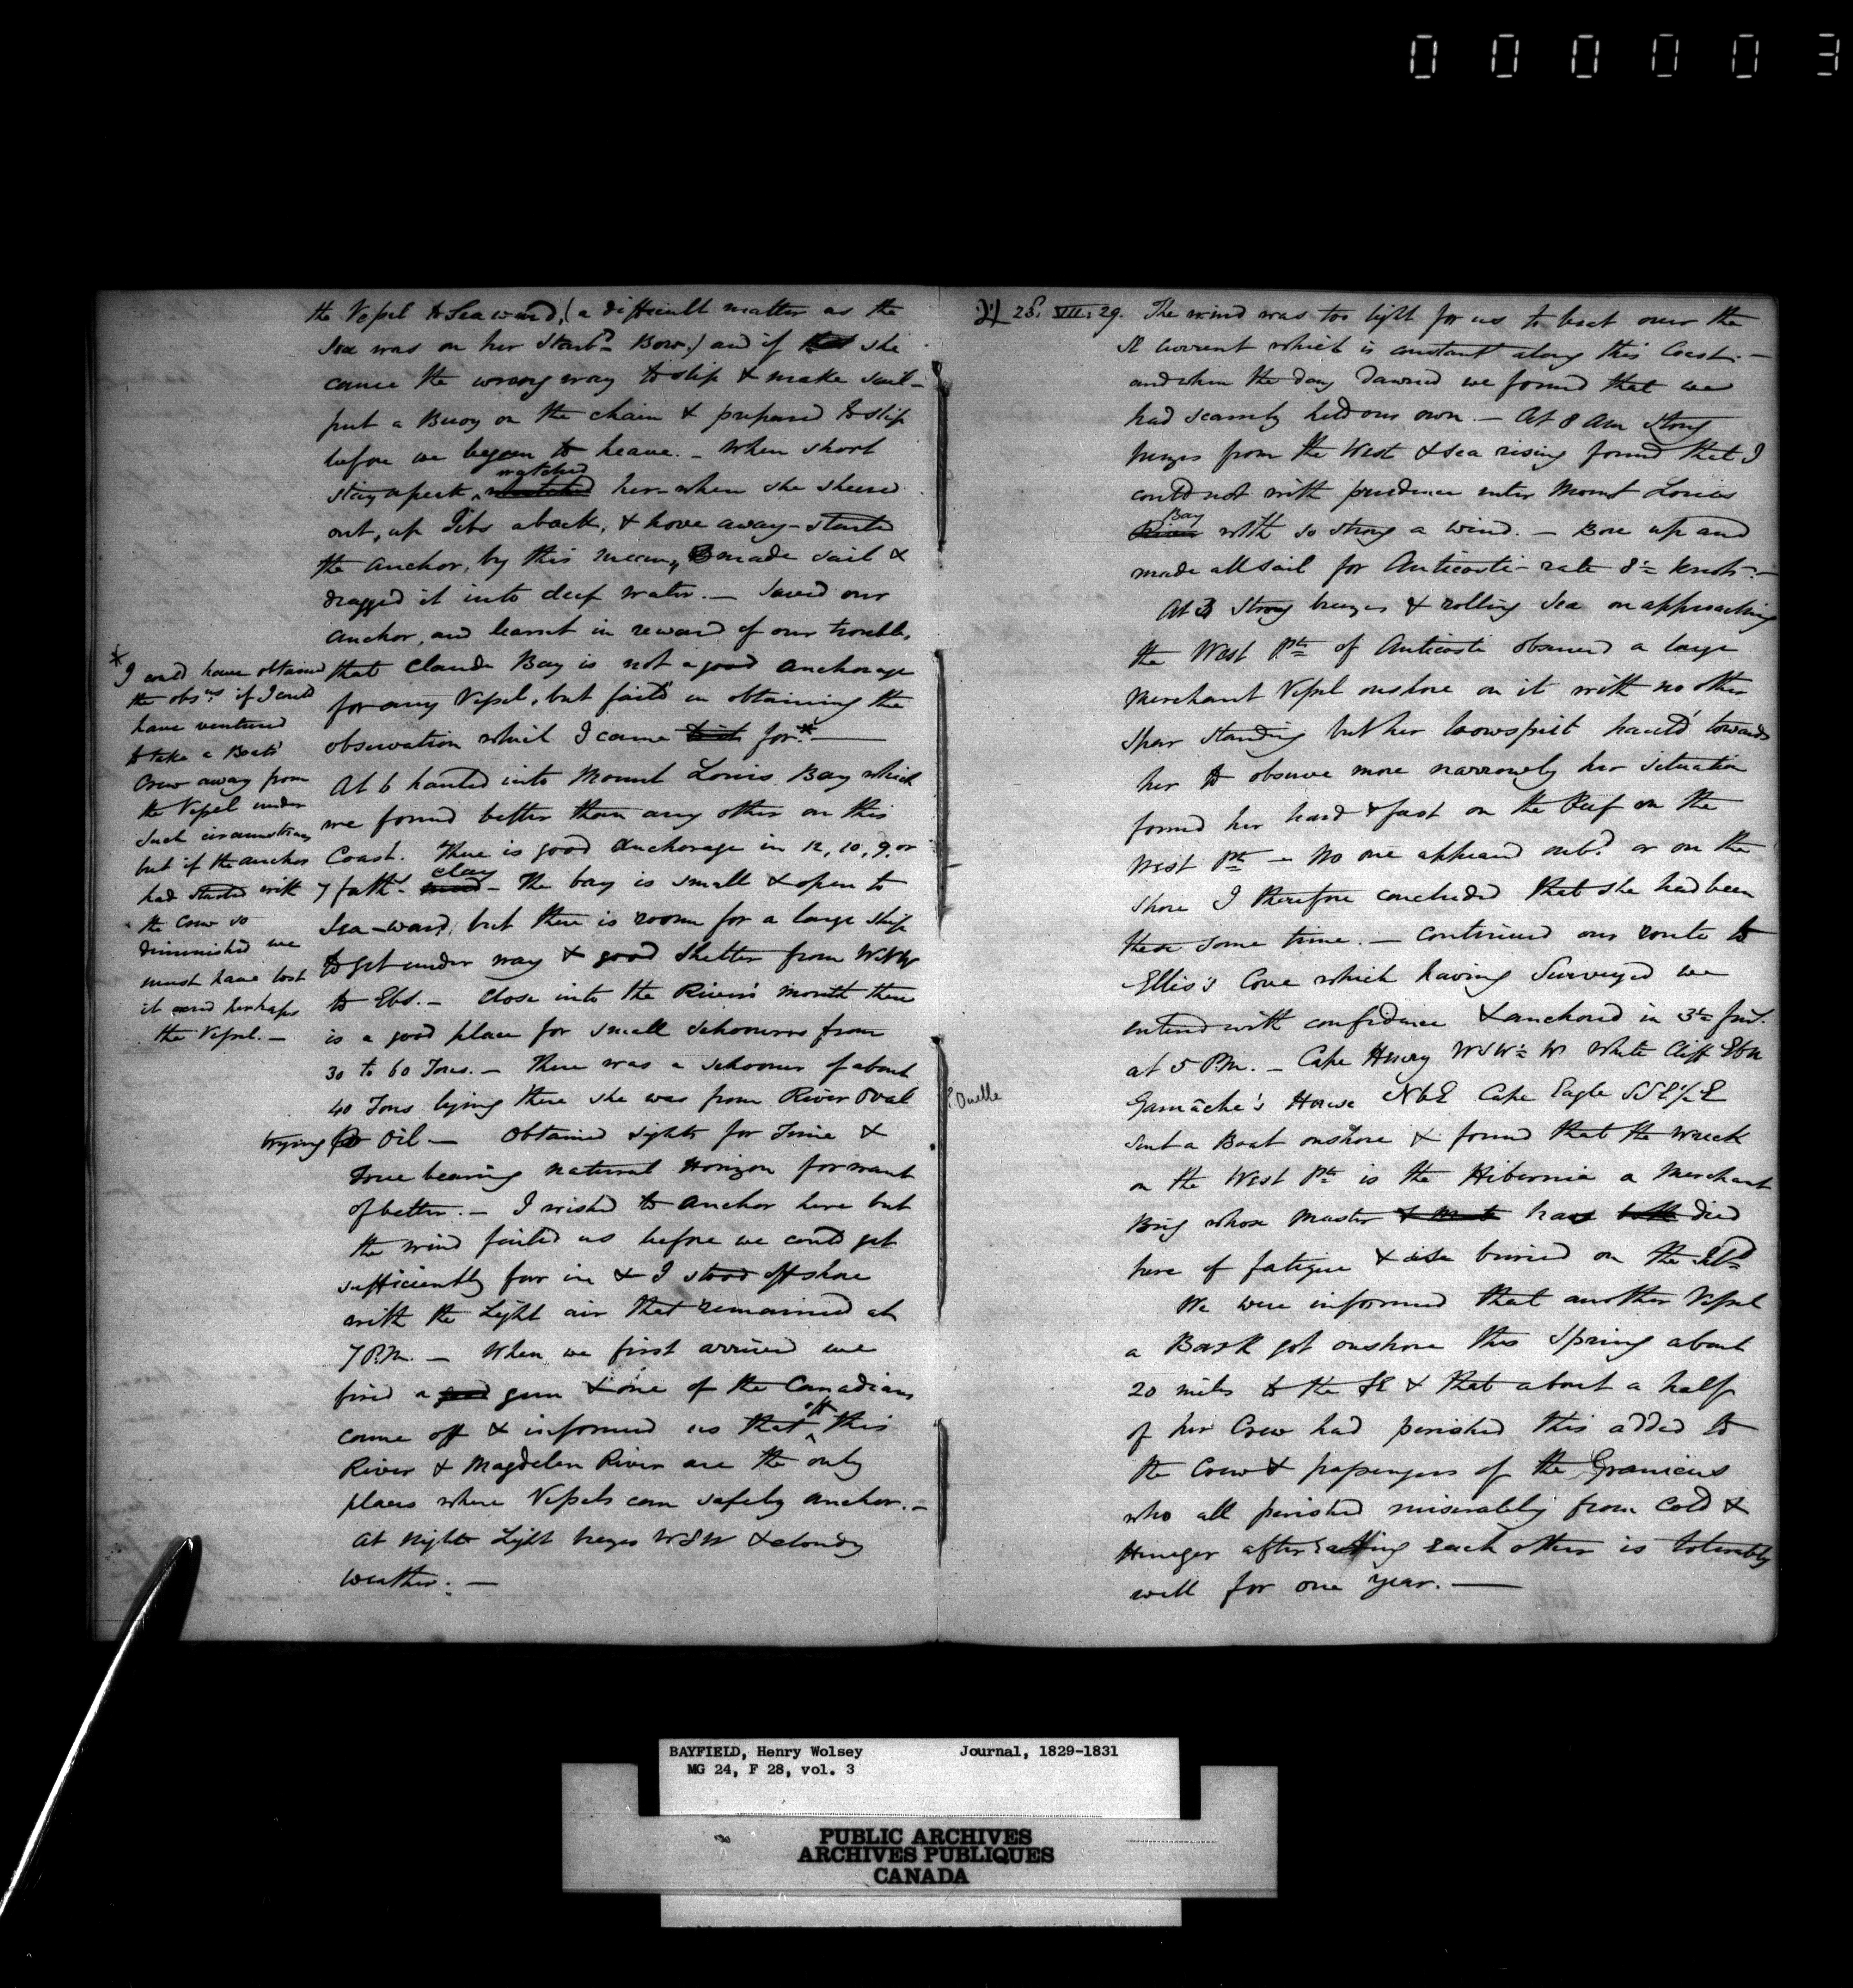 000003
the Vessel to Seaward, (a difficult matter as the
Sea was on her Starbd Bow.) and if she
came the wrong way to slip & make sail –
put a Buoy on the chain & prepared to slip
before we began to heave. – When short
stay apeak, watched her – when she sheered
out, up Jibs aback, & hove away – started
the Anchor, by this means, made sail &
dragged it into deep water. – Saved our
Anchor, and learnt in reward of our trouble,
that Claude Bay is not a good Anchorage
for any Vessel, but fail'd in obtaining the
observation which I came for.* —
At 6 hauled into Mount Louis Bay which
we found better than any other on this
Coast. There is good Anchorage in 12, 10, 9, or
7 faths clay – The bay is small & open to
Sea-ward, but there is room for a large ship
to get under way & good shelter from
to Ebs. – Close into the River's mouth there
is a good place for small schooners from
30 to 60 Tons. – There was a schooner of about
40 Tons lying there she was from River Oval
trying Oil – Obtained sights for Time &
True bearing natural Horizon for want
of better. – I wished to anchor here but
the wind failed us before we could get
sufficiently far in & I stood off shore
with the Light air that remained at
7 P.M. – When we first arrived we
fired a gun & one of the Canadians
came off & informed us that off this
River & Magdelen River are the only
places where Vessels can safely anchor. –
At night Light breezes WSW & cloudy
weather. –
* I could have obtained
the obsns if I could
have ventured
to take a Boats'
Crew away from
the Vessel under
such circumstances
but if the anchor
had started with
the Crew so
diminished we
must have lost
it and perhaps
the Vessel. –
? Ouelle
28. VII. 29. The wind was too light for us to beat over the
SE Current which is constant along this Coast. –
and when the day dawned we found that we
had scarcely held our own. – At 8 AM Strong
breezes from the West & sea rising found that I
could not with prudence enter Mount Louis
River Bay with so strong a wind. – Bore up and
made all sail for Anticosti – rate 8½ knots. –
At 3 Strong breezes & rolling Sea on approaching
the West Pt of Anticosti observed a large
Merchant Vessel onshore on it with no other
Spar standing but her bowsprit haul'd towards
her to observe more narrowly her situation
found her hard & fast on the Reef on the
West Pt – No one appeared onbd or on the
shore I therefore concluded that she had been
there some time. – Continued our route to
Ellis's Cove which having Surveyed we
entered with confidence & anchored in 3½ fms.
at 5 P.M. – Cape Henry WSW½W White Cliff EbN
Gamâche's House NbE Cape Eagle SSE½E
Sent a Boat onshore & found that the wreck
on the West Pt is the Hibernia a Merchant
Brig whose Master has died
here of fatigue & is buried on the Isld
We were informed that another Vessel
a Bark got onshore this Spring about
20 miles to the SE & that about a half
of her Crew had perished this added to
the Crew & passengers of the Granicus
who all perished miserably from Cold &
Hunger after eating each other is tolerably
well for one year. —
BAYFIELD, Henry Wolsey Journal, 1829-1831
MG 24, F 28, vol. 3
PUBLIC ARCHIVES
ARCHIVES PUBLIQUES
CANADA